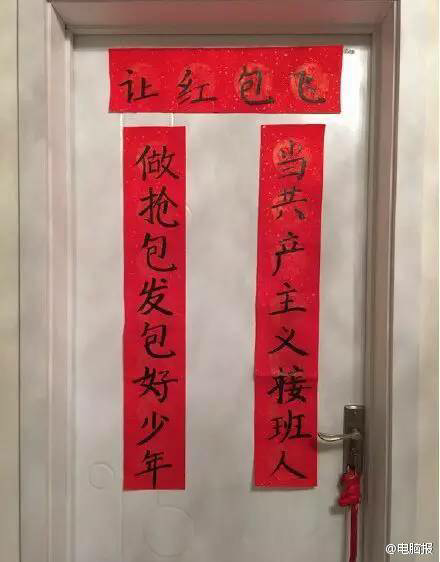 让红包飞
当共产主义接班人
做抢包发包好少年
@电脑报